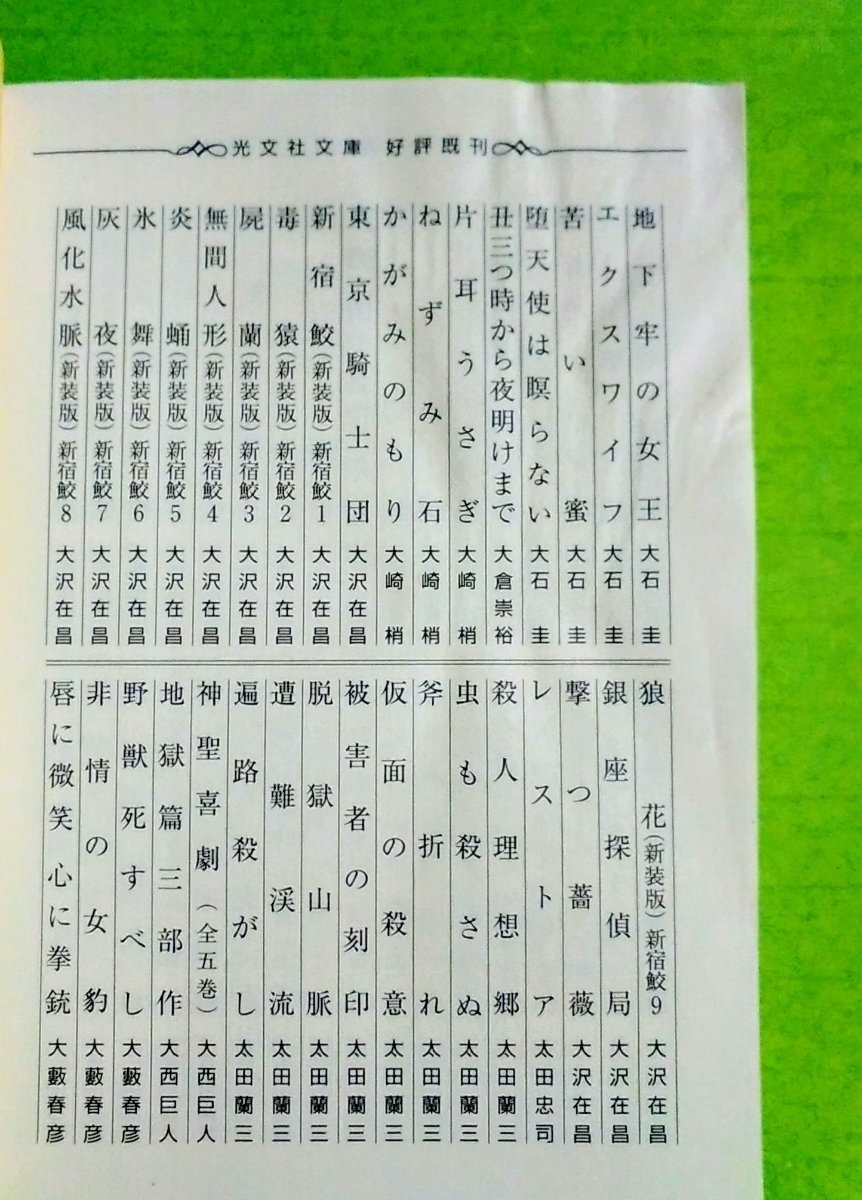 光文社文庫 好評既刊
地下牢の女王 大石 圭
エクスワイフ 大石 圭
苦い蜜 大石 圭
堕天使は瞑らない 大石 圭
丑三つ時から夜明けまで 大倉崇裕
片耳うさぎ 大崎 梢
ねずみ石 大崎 梢
かがみのもり 大崎 梢
東京騎士団 大沢在昌
新宿鮫(新装版) 新宿鮫1 大沢在昌
毒猿(新装版) 新宿鮫2 大沢在昌
屍蘭(新装版) 新宿鮫3 大沢在昌
無間人形(新装版) 新宿鮫4 大沢在昌
炎蛹(新装版) 新宿鮫5 大沢在昌
氷舞(新装版) 新宿鮫6 大沢在昌
灰夜(新装版) 新宿鮫7 大沢在昌
風化水脈(新装版) 新宿鮫8 大沢在昌
狼花(新装版) 新宿鮫9 大沢在昌
銀座探偵局 大沢在昌
撃つ薔薇 大沢在昌
レストア 太田忠司
殺人理想郷 太田蘭三
虫も殺さぬ 太田蘭三
斧折れ 太田蘭三
仮面の殺意 太田蘭三
被害者の刻印 太田蘭三
脱獄山脈 太田蘭三
遭難渓流 太田蘭三
遍路殺がし 太田蘭三
神聖喜劇(全五巻) 大西巨人
地獄篇三部作 大西巨人
野獣死すべし 大藪春彦
非情の女豹 大藪春彦
唇に微笑心に拳銃 大藪春彦